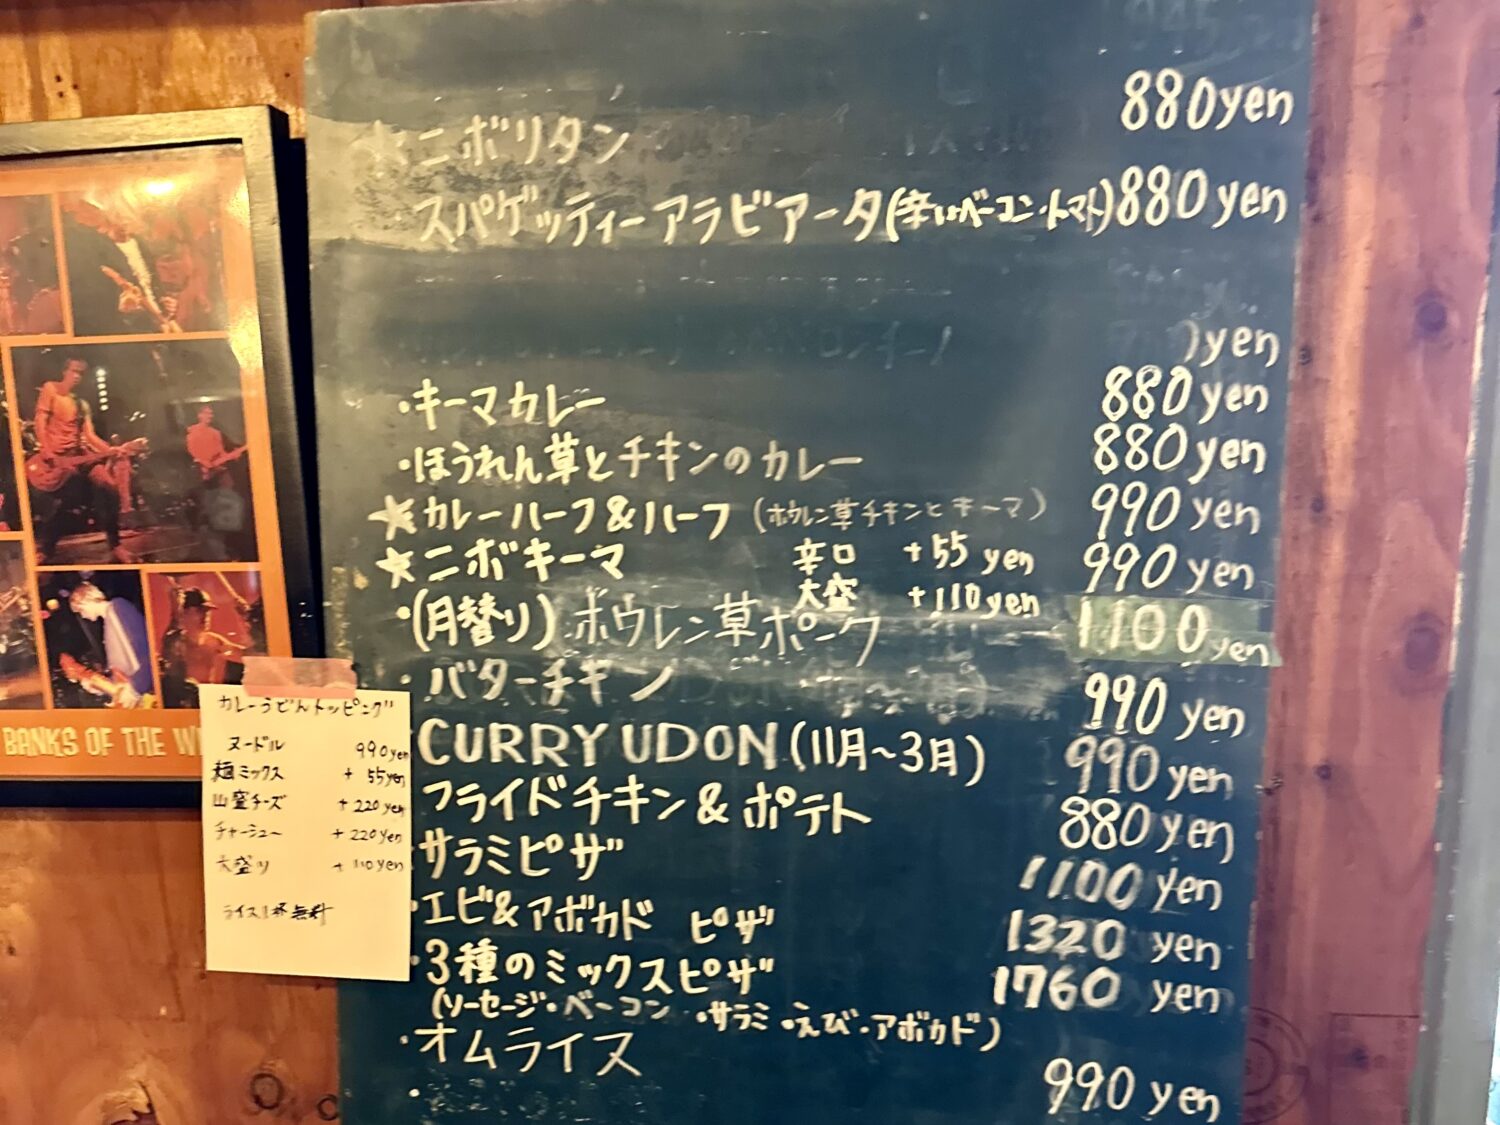 880yen
★ニボリタン
・スパゲッティーアラビアータ(辛いベーコン・トマト) 880yen
yen
・キーマカレー 880yen
・ほうれん草とチキンのカレー 880yen
★カレーハーフ&ハーフ (ホウレン草チキンとキーマ) 990yen
★ニボキーマ 辛口 +55yen 990yen
大盛 +110yen
・(月替り)ホウレン草ポーク 1100yen
・バターチキン 990yen
CURRY UDON (11月〜3月) 990yen
フライドチキン&ポテト 880yen
・サラミピザ 1100yen
・エビ&アボカド ピザ 1320yen
・3種のミックスピザ 1760yen
(ソーセージ・ベーコン・サラミ・えび・アボカド)
・オムライス 990yen
カレーうどんトッピング
ヌードル 990yen
麺ミックス +55yen
山盛チーズ +220yen
チャーシュー +220yen
大盛り +110yen
ライス1杯無料
BANKS OF THE